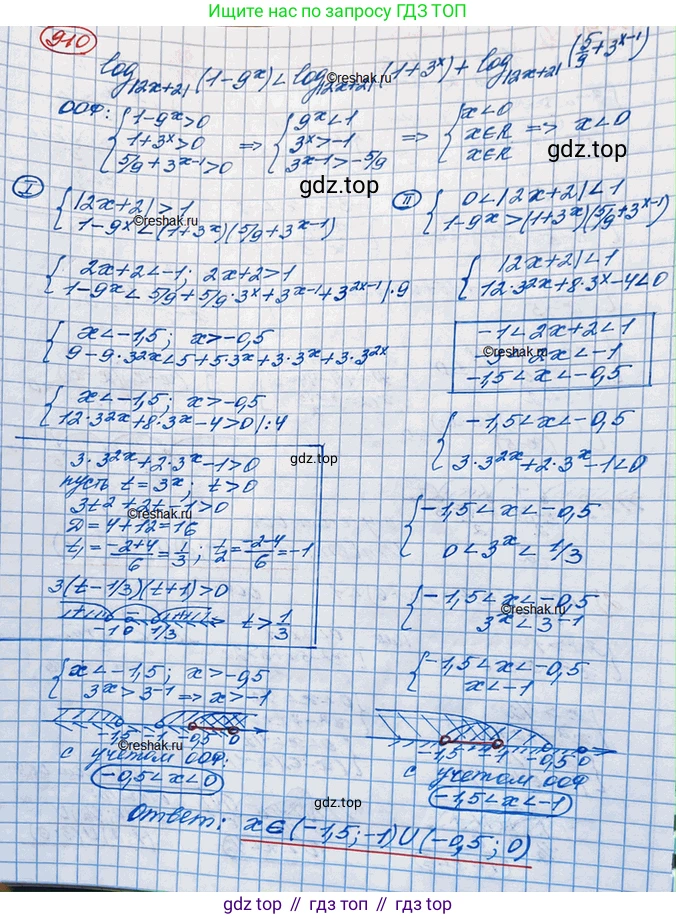 Ищите решение по запросу ГДЗ ТОП
910
log|2x+2| (1-9^x) < log|2x+2| (1+3^x) + log|2x+2| (5/9+3^(x-1))
©reshak.ru
ООФ: { 1-9^x>0 ⇒ { 9^x<1 ⇒ { x<0 ⇒ x<0
1+3^x>0 3^x>-1 x∈R
5/9+3^(x-1)>0 3^(x-1)>-5/9 x∈R
gdz.top
gdz.top
I { |2x+2|>1
1-9^x<(1+3^x)(5/9+3^(x-1))
©reshak.ru
{ 2x+2<-1; 2x+2>1
1-9^x<5/9+5/9·3^x+3^(x-1)+3^(2x-1) |·9
{ x<-1,5; x>-0,5
9-9·3^2x<5+5·3^x+3·3^x+3·3^2x
{ x<-1,5; x>-0,5
12·3^2x+8·3^x-4>0 |:4
3·3^2x+2·3^x-1>0
пусть t=3^x; t>0
3t²+2t-1>0
©reshak.ru
D=4+12=16
t₁=(-2+4)/6=1/3; t₂=(-2-4)/6=-1
3(t-1/3)(t+1)>0
-1 0 1/3 t>1/3
{ x<-1,5; x>-0,5
3^x>3^-1 ⇒ x>-1
-1,5 -1 -0,5 0
с учетом ООФ:
©reshak.ru
-0,5<x<0
II { 0<|2x+2|<1
1-9^x>(1+3^x)(5/9+3^(x-1))
{ |2x+2|<1
12·3^2x+8·3^x-4<0
-1<2x+2<1
-3<2x<-1
©reshak.ru
-1,5<x<-0,5
{ -1,5<x<-0,5
3·3^2x+2·3^x-1<0
gdz.top
{ -1,5<x<-0,5
0<3^x<1/3
{ -1,5<x<-0,5
3^x<3^-1
©reshak.ru
{ -1,5<x<-0,5
x<-1
-1,5 -1 -0,5 0
с учетом ООФ
-1,5<x<-1
gdz.top
Ответ: x∈(-1,5;-1)∪(-0,5;0)
gdz.top // гдз.топ // gdz.top // гдз.топ